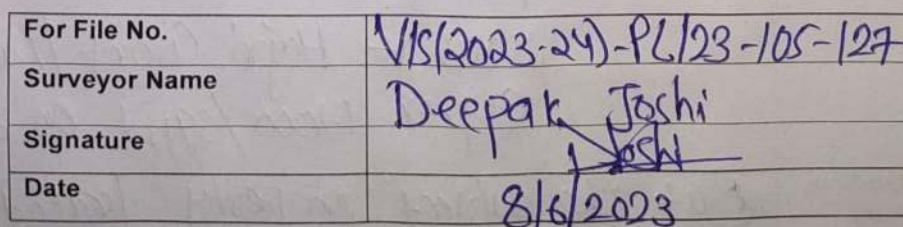 For File No. VIS(2023-24)-PL/23-105-127
Surveyor Name Deepak Joshi
Signature Joshi
Date 8/6/2023